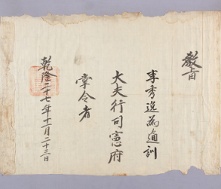 敎旨
李秀逸爲通訓
大夫行司憲府
掌令者
乾隆二十七年十二月二十三日